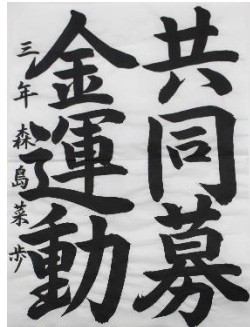 共同募
金運動
三年森島菜歩